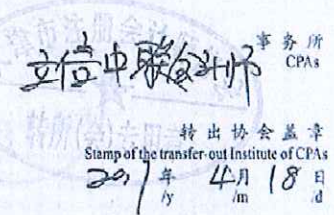 立信中联会计师 事务所
CPAs
转出协会盖章
Stamp of the transfer-out Institute of CPAs
2017年 4月 18日
/y /m /d